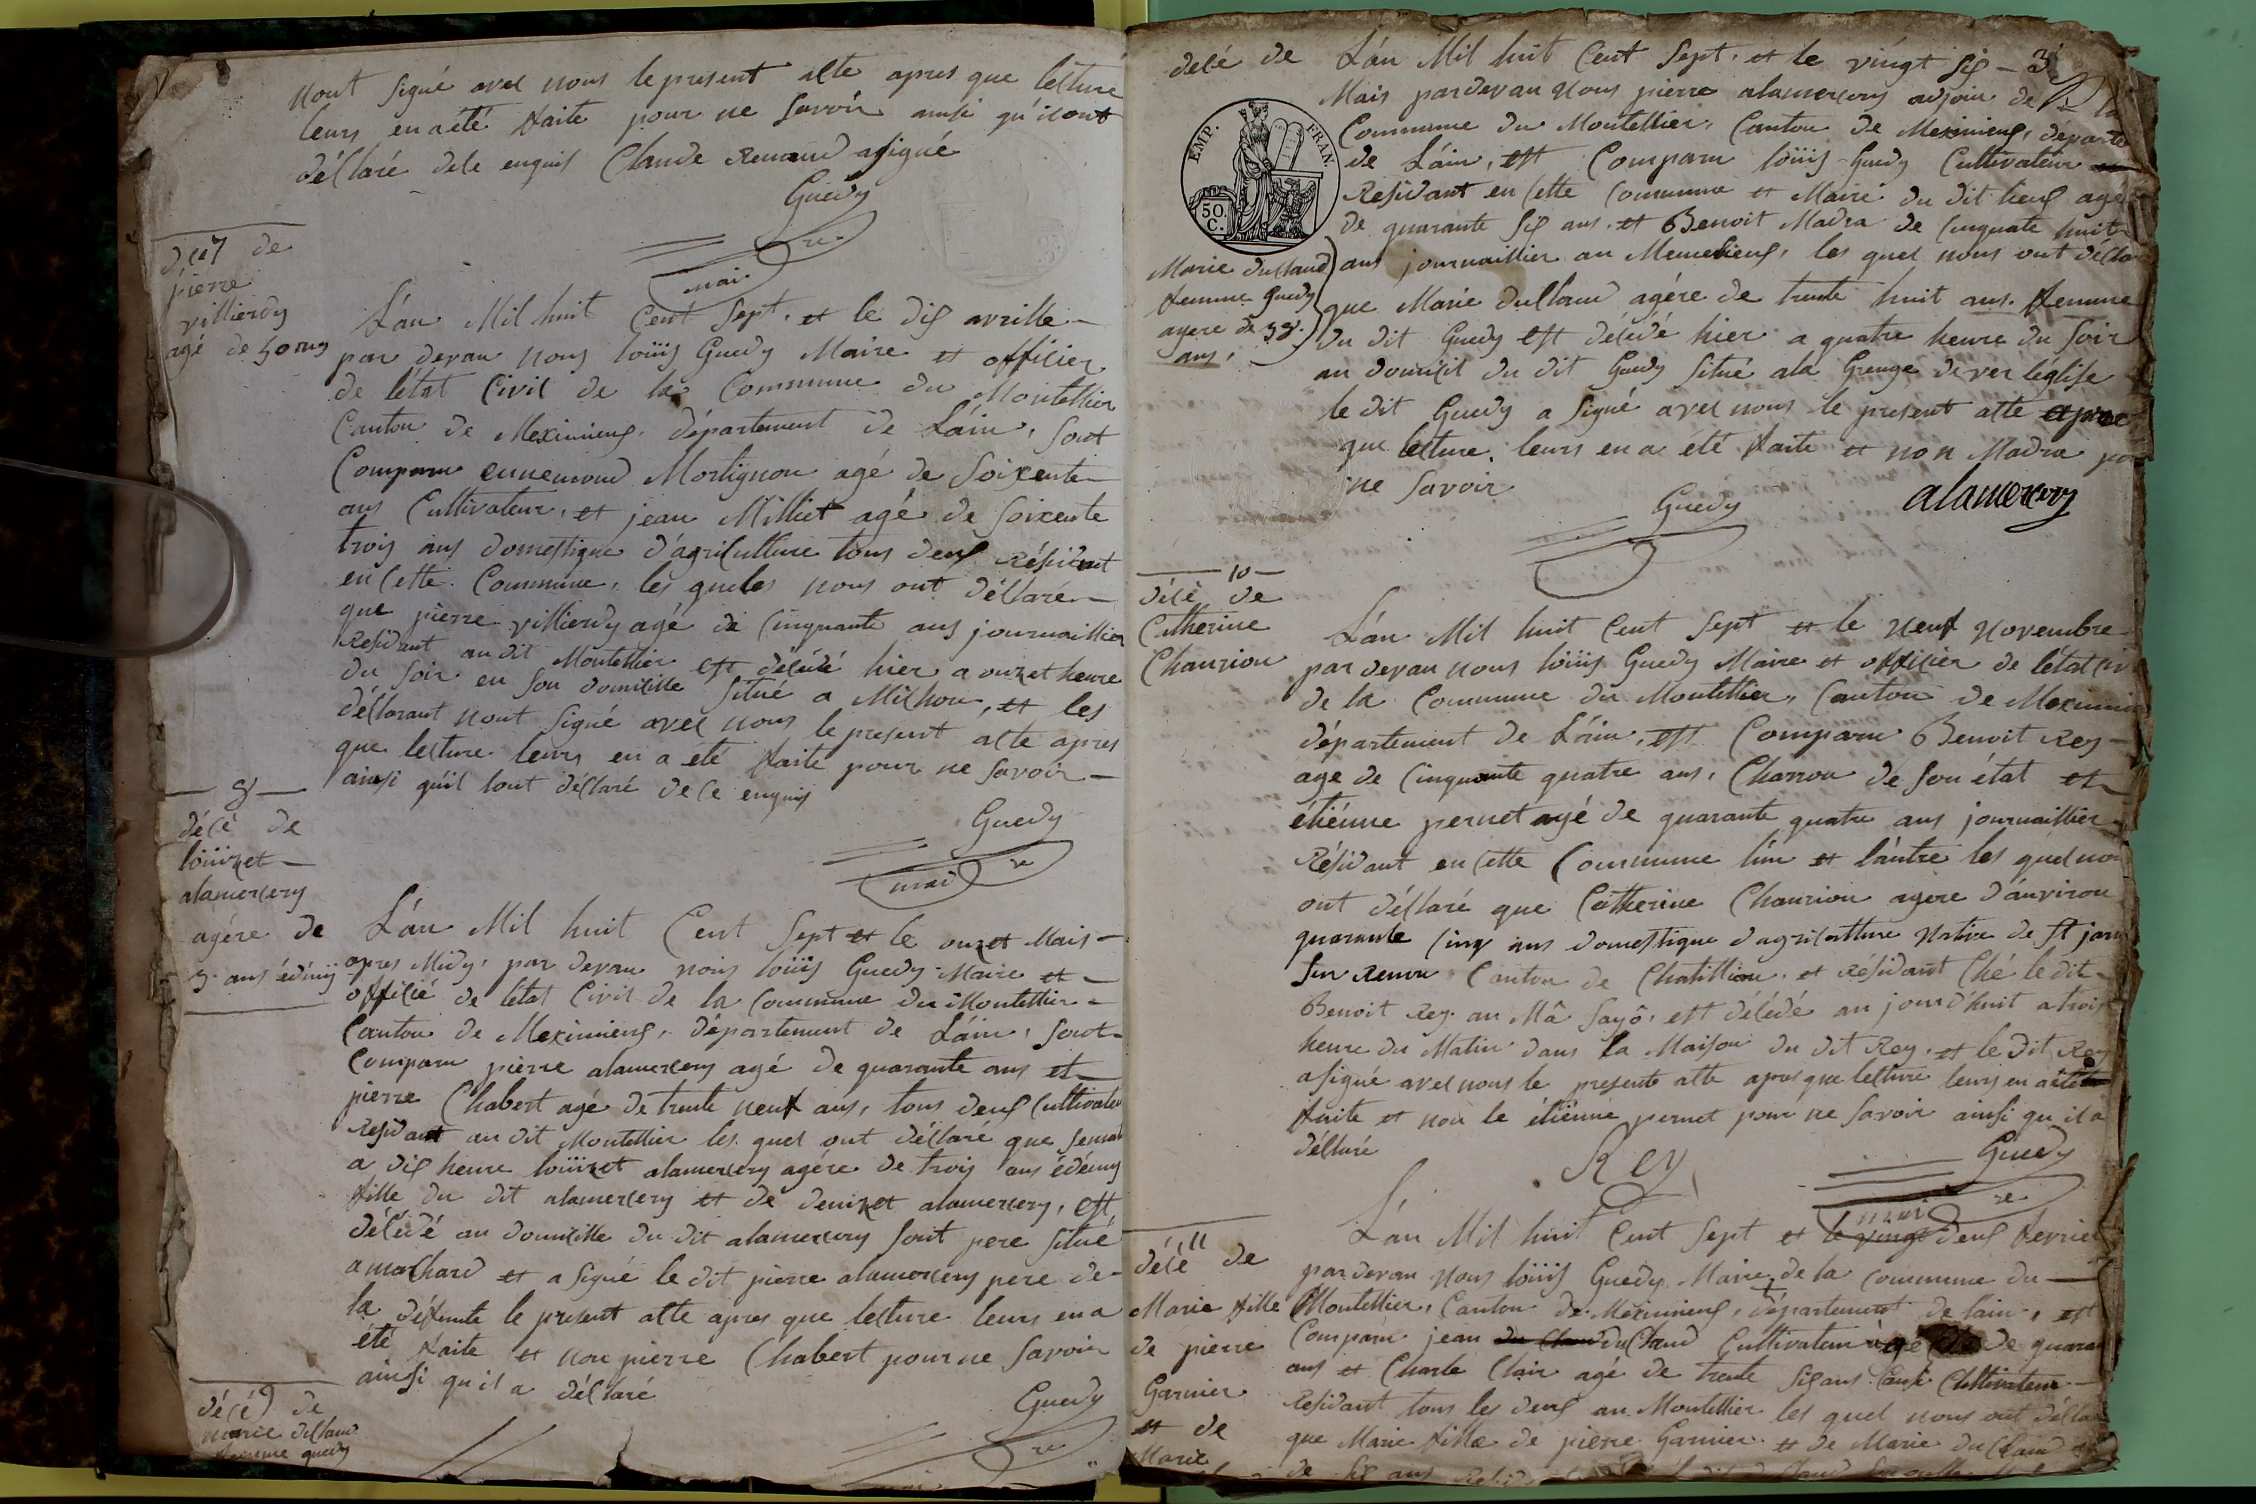 nont signé avec nous le present acte apres que lecture
leurs en a été faite pour ne savoir ainsi qu'il ont
déclaré dele enquis Claude Renaud a signé
Guedy
maire
7
décé de
pierre
villierdy
agé de 50 ans
L'an Mil huit Cent Sept. et le dix avrille
par devan nous loüis Guedy Maire et officier
de l'état Civil de la Commune du Montellier
Canton de Meximieux, département de L'áin, sont
Comparu ennemond Mortignon agé de soixente
ans Cultivateur, et jean Milliet agé de soixente
trois ans domestique d'agriculture tous deux résidant
en cette Commune, les queles nous ont déclaré
que pierre villierdy agé de Cinquante ans journaillier
residant au dit Montellier est décédé hier a onzet heure
du soir en son domicille situé a Milhon, et les
déclarant nont signé avec nous le present acte apres
que lecture leurs en a eté faite pour ne savoir
ainsi quil lont déclaré de ce enquis
Guedy
maire
8
décé de
loüizet
alamercery
agére de
3 ans édémÿ
L'án Mil huit Cent Sept et le onzet Mais
apres Midy, par devan nous loüis Guedy Maire et
officié de l'état Civil de la Commune du Montellier
Canton de Meximieux, département de L'áin, sont
Comparu pierre alamercery agé de quarante ans et
pierre Chabert agé de trente neuf ans, tous deux Cultivateu
residant au dit Montellier les quel ont déclaré que
a dix heure loüizet alamercery agére de trois ans édémy
fille du dit alamercery et de denizet alamercery, est
décédé au domicille du dit alamercery sont pere situé
a mochard et a signé le dit pierre alamercery pere de
la défunte le present acte apres que lecture leurs en a
été faite et non pierre Chabert pour ne savoir
ainsi qu'il a déclaré
Guedy
re
9
décé de
marie duclaud
femme guedy
3
decé de
EMP. FRAN.
50 C.
Marie duclaud
femme Guedy
agere de 38
ans,
L'án Mil huit Cent Sept, et le vingt six
Mais pardevan nous pierre alamercery adjoin de la
Commune du Montellier, Canton de Meximieux, départe
de L'áin, est Comparu loüis Guedy Cultivateur
Residant en cette Commune et Maire du dit lieux agé
de quarante six ans, et Benoit Madra de Cinquate huit
ans journaillier au Memelieux, les quel nous ont décla
que Marie duclaud agére de trente huit ans, femme
du dit Guedy est décédé hier a quatre heure du soir
au domicil du dit Guedy situé ala Grenge de ver léglise
le dit Guedy a signé avec nous le present acte apree
que lecture, leurs en a été faite et non Madra po
ne savoir
Guedy
alamercery
10
décè de
Catherine
Chaurion
L'án Mil huit Cent Sept et le neuf novembre
par devan nous loüis Guedy Maire et officier de l'état
de la Commune du Montellier, Canton de Meximie
département de L'áin, est Comparu Benoit Rey
age de Cinquante quatre ans, Charron de son état et
étiénne pernet agé de quarante quatre ans journaillier
Résidant en cette Commune lun et láutre les quel nou
ont déclaré que Catherine Chaurion agere d'anviron
quarante cinq ans domestique d'agriculture native de st jam
sur Renou Canton de Chatillion, et résidant Ché le dit
Benoit Rey au Mâ Sayô, est décédé au jourd'huit a trois
heure du Matin dans la Maison du dit Rey, et le dit Rey
a signé avec nous le presente acte apres que lecture leurs en a été
faite et non le étiénne pernet pour ne savoir ainsi qu il a
déclaré
Rey
Guedy
maire
11
décé de
Marie fille
de pierre
Garnier
et de
Marie
L'án Mil huit Cent Sept et le vingt deux fevrier
par devan nous loüis Guedy Maire de la Commune du
Montellier, Canton de Meximieux, département de lain, est
Comparu jean duclaud Cultivateur agé de quaran
ans et Charle Clair agé de trente six ans Cultivateur
residant tous les deux au Montellier les quel nous ont décla
que Marie fille de pierre Garnier et de Marie duclaud
de six ans